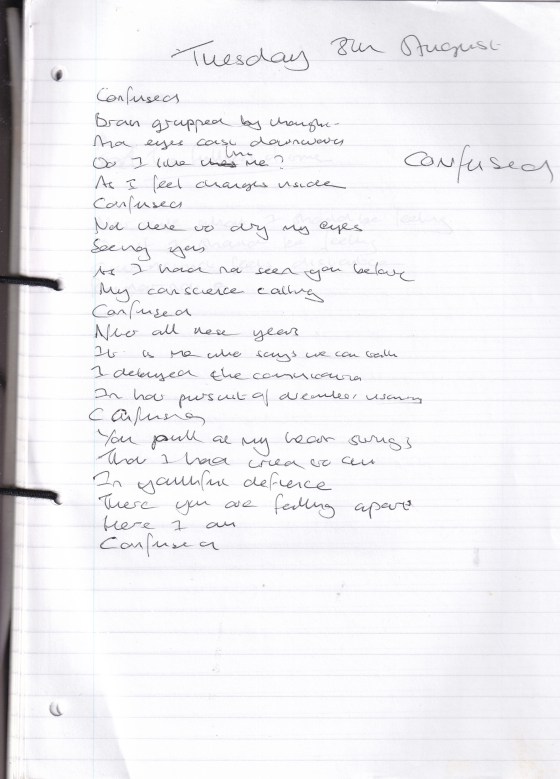 Tuesday 8th August
Confused
Confused
Brain gripped by thought
And eyes cast downwards
Do I like this me?
As I feel changes inside
Confused
Not here to dry my eyes
Seeing you
As I had not seen you before
My conscience calling
Confused
After all these years
It is me who says we can talk
I delayed the
In hot pursuit of
Confusing
You pull at my heart strings
That I had tried to cut
In youthful defiance
There you are falling apart
Here I am
Confused